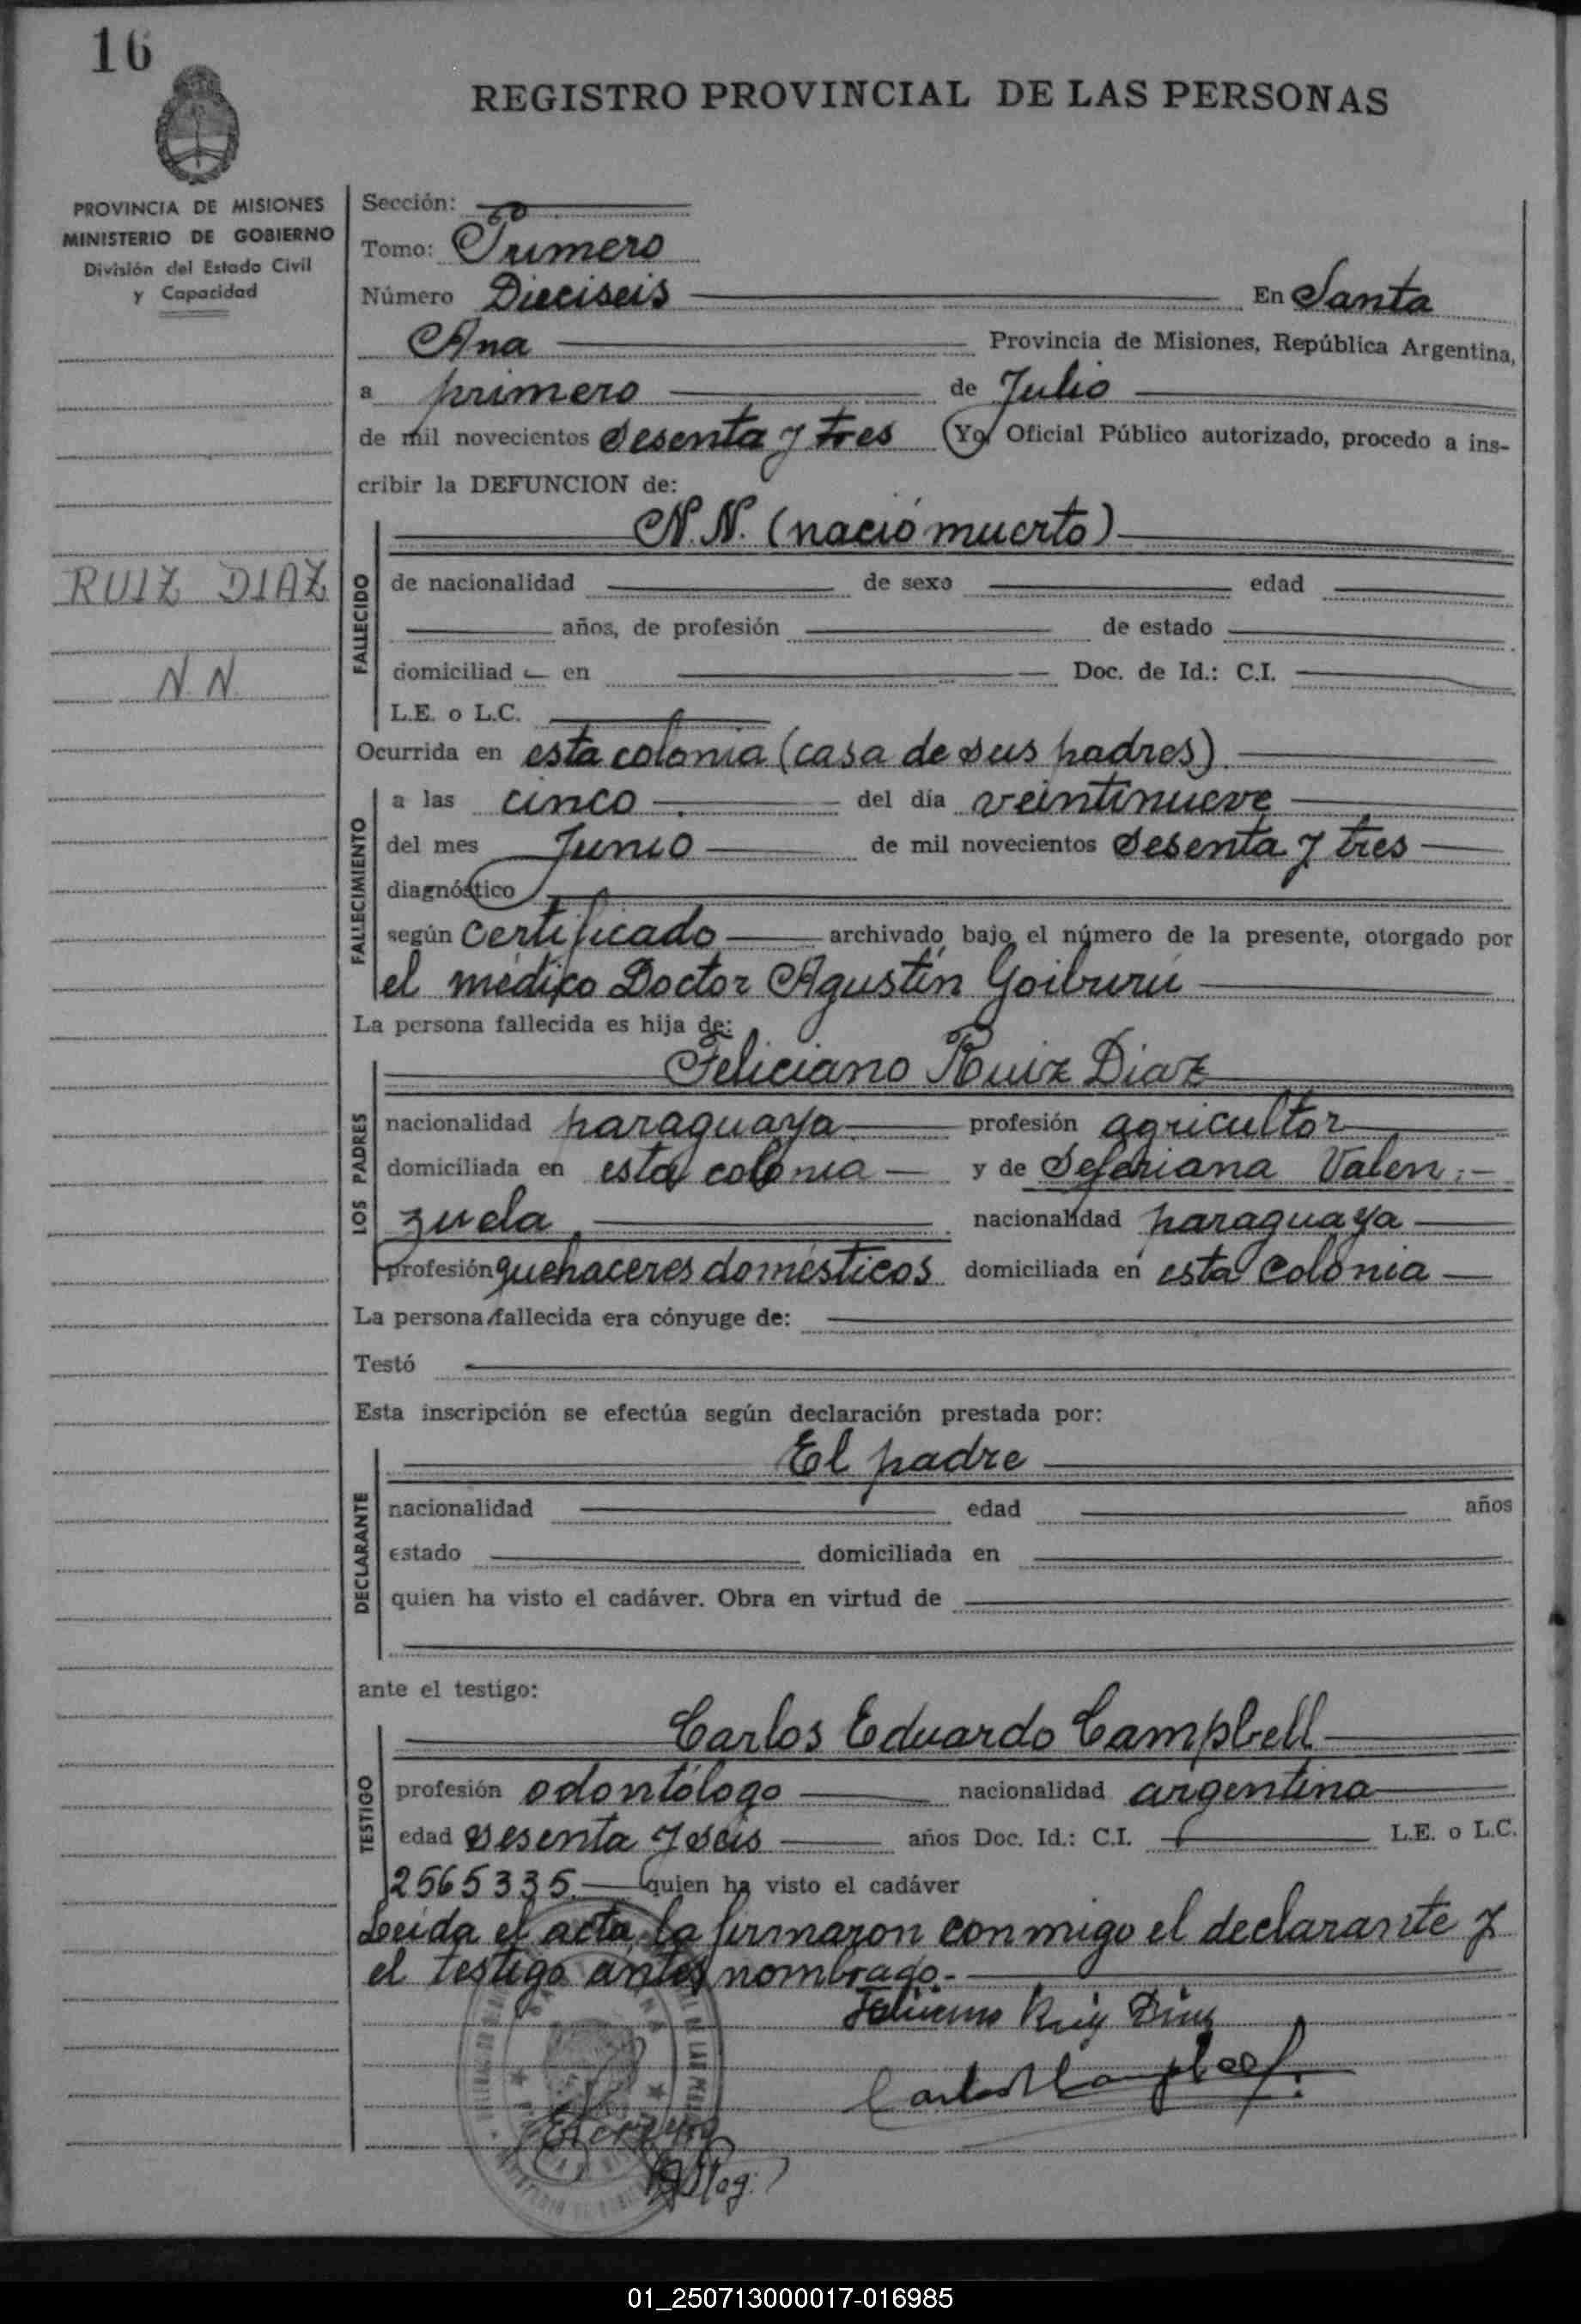 16
REGISTRO PROVINCIAL DE LAS PERSONAS
PROVINCIA DE MISIONES
MINISTERIO DE GOBIERNO
División del Estado Civil
y Capacidad
RUIZ DIAZ
N. N.
Sección:
Tomo: Primero
Número Dieciseis En Santa
Ana Provincia de Misiones, República Argentina,
a primero de Julio
de mil novecientos sesenta y tres Yo, Oficial Público autorizado, procedo a ins-
cribir la DEFUNCION de:
N. N. (nació muerto)
FALLECIDO
de nacionalidad de sexo edad
años, de profesión de estado
domiciliad en Doc. de Id.: C.I.
L.E. o L.C.
Ocurrida en esta colonia (casa de sus padres)
FALLECIMIENTO
a las cinco del día veintinueve
del mes Junio de mil novecientos sesenta y tres
diagnóstico
según certificado archivado bajo el número de la presente, otorgado por
el médico Doctor Agustín Goiburú
La persona fallecida es hija de:
Feliciano Ruiz Diaz
LOS PADRES
nacionalidad paraguaya profesión agricultor
domiciliada en esta colonia y de Seferiana Valen-
zuela nacionalidad paraguaya
profesión quehaceres domésticos domiciliada en esta colonia
La persona fallecida era cónyuge de:
Testó
Esta inscripción se efectúa según declaración prestada por:
El padre
DECLARANTE
nacionalidad edad años
estado domiciliada en
quien ha visto el cadáver. Obra en virtud de
ante el testigo:
Carlos Eduardo Campbell
TESTIGO
profesión odontólogo nacionalidad argentina
edad sesenta y seis años Doc. Id.: C.I. L.E. o L.C.
2565335. quien ha visto el cadáver
Leida el acta, la firmaron conmigo el declarante y
el testigo antes nombrado.-
Feliciano Ruiz Diaz
Carlos Campbell
01_250713000017-016985